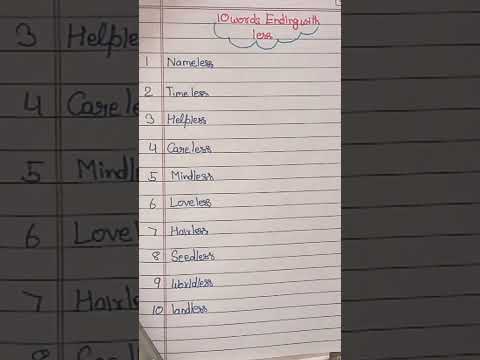 10 words Ending with
less
1 Nameless
2 Timeless
3 Helpless
4 Careless
5 Mindless
6 Loveless
7 Hairless
8 Seedless
9 Worldless
10 landless